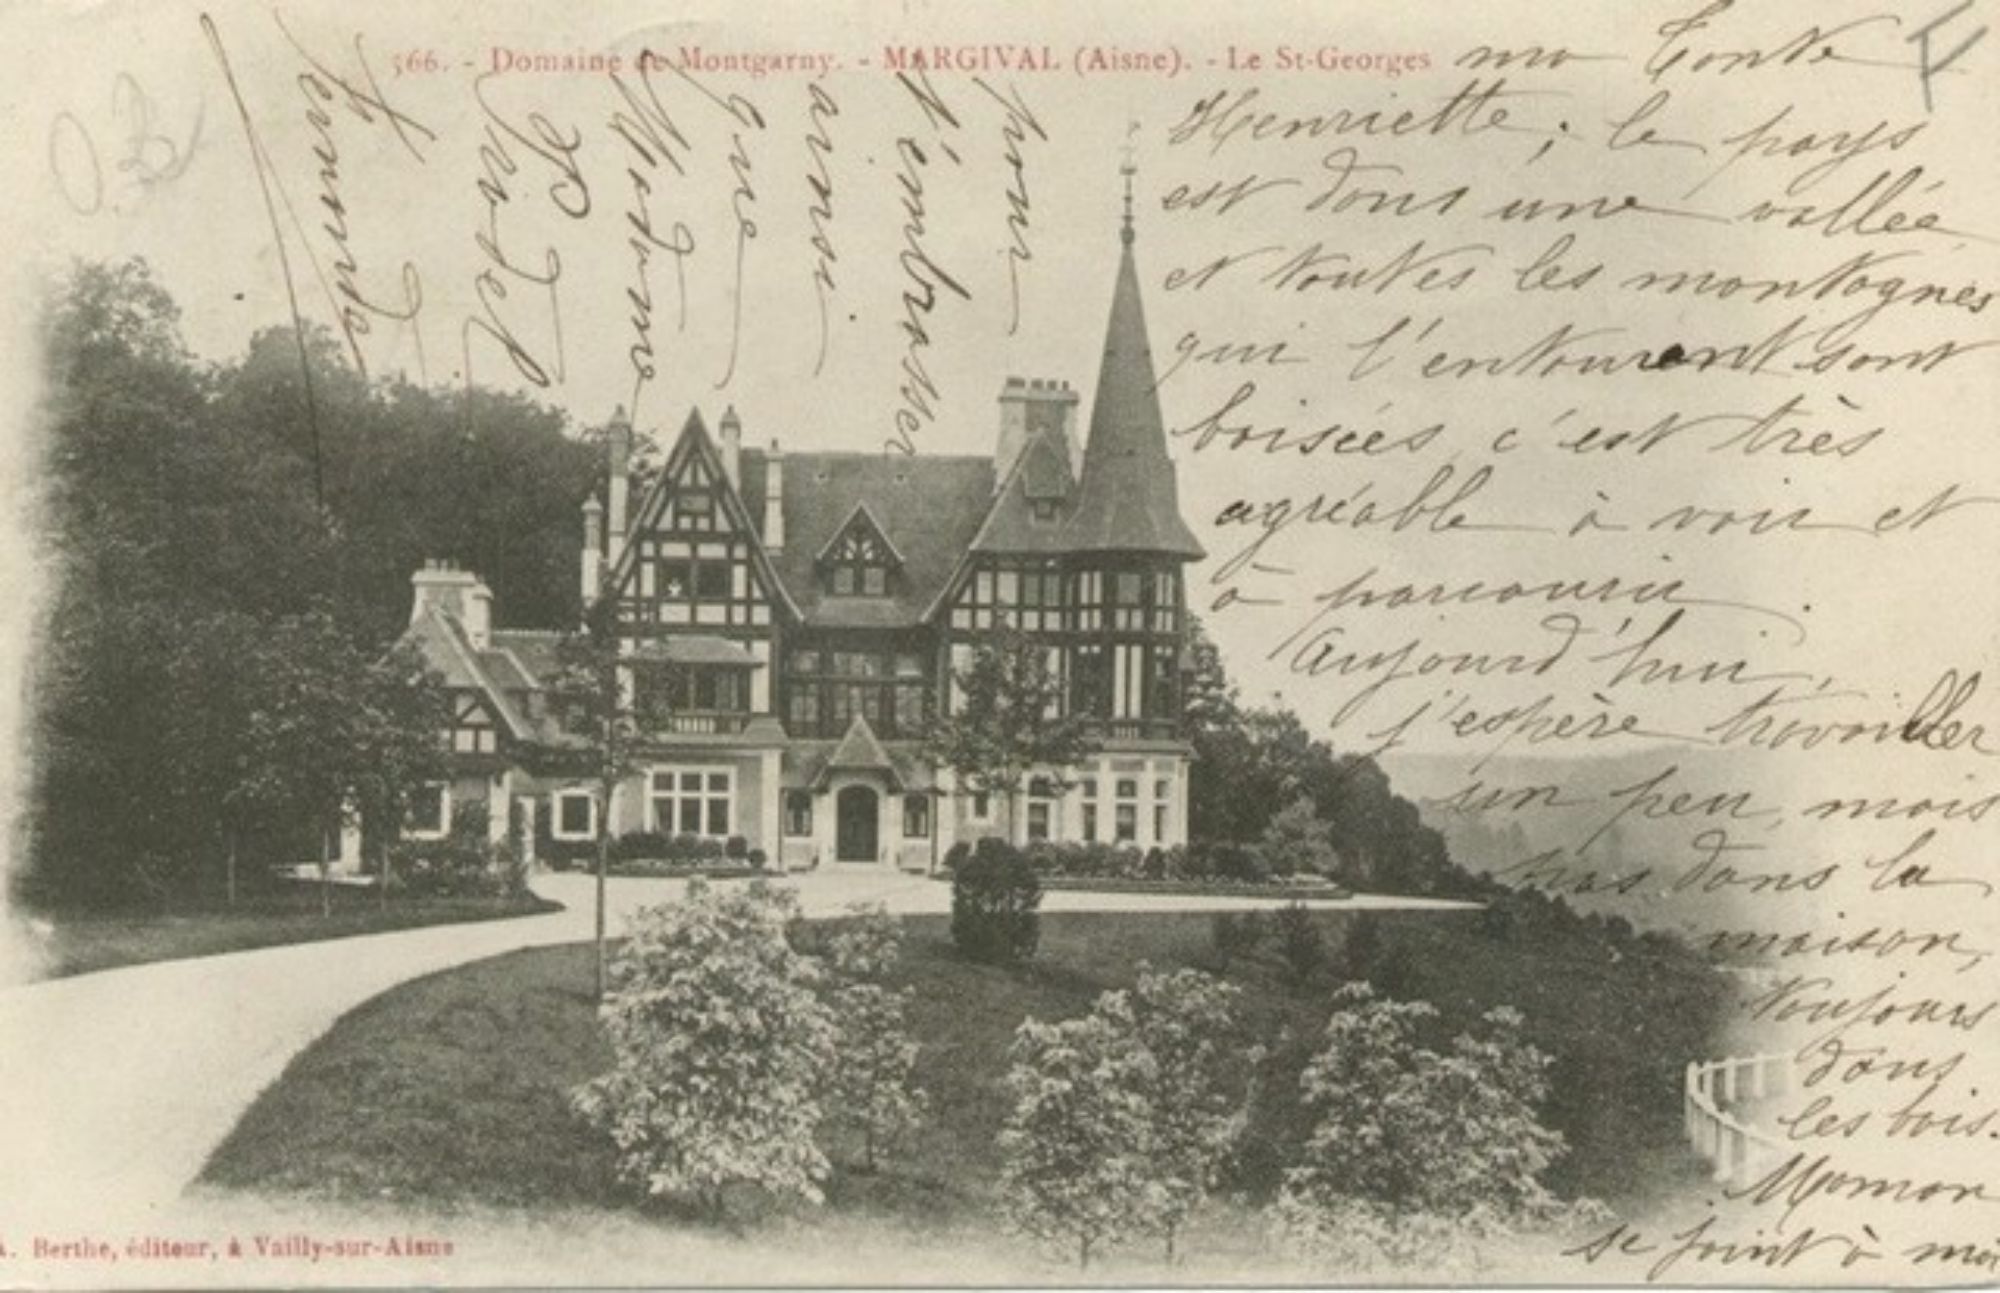 566. - Domaine de Montgarny. - MARGIVAL (Aisne). - Le St-Georges
ma Tante
Henriette; le pays
est dans une vallée
et toutes les montagnes
qui l'entourent sont
boisées, c'est très
agréable à voir et
à parcourir.
Aujourd'hui,
j'espère travailler
un peu, mais
pas dans la
maison,
toujours
dans
les bois.
Maman
se joint à moi
pour
t'embrasser
ainsi
que
Madame
P
Fernande
A. Berthe, éditeur, à Vailly-sur-Aisne